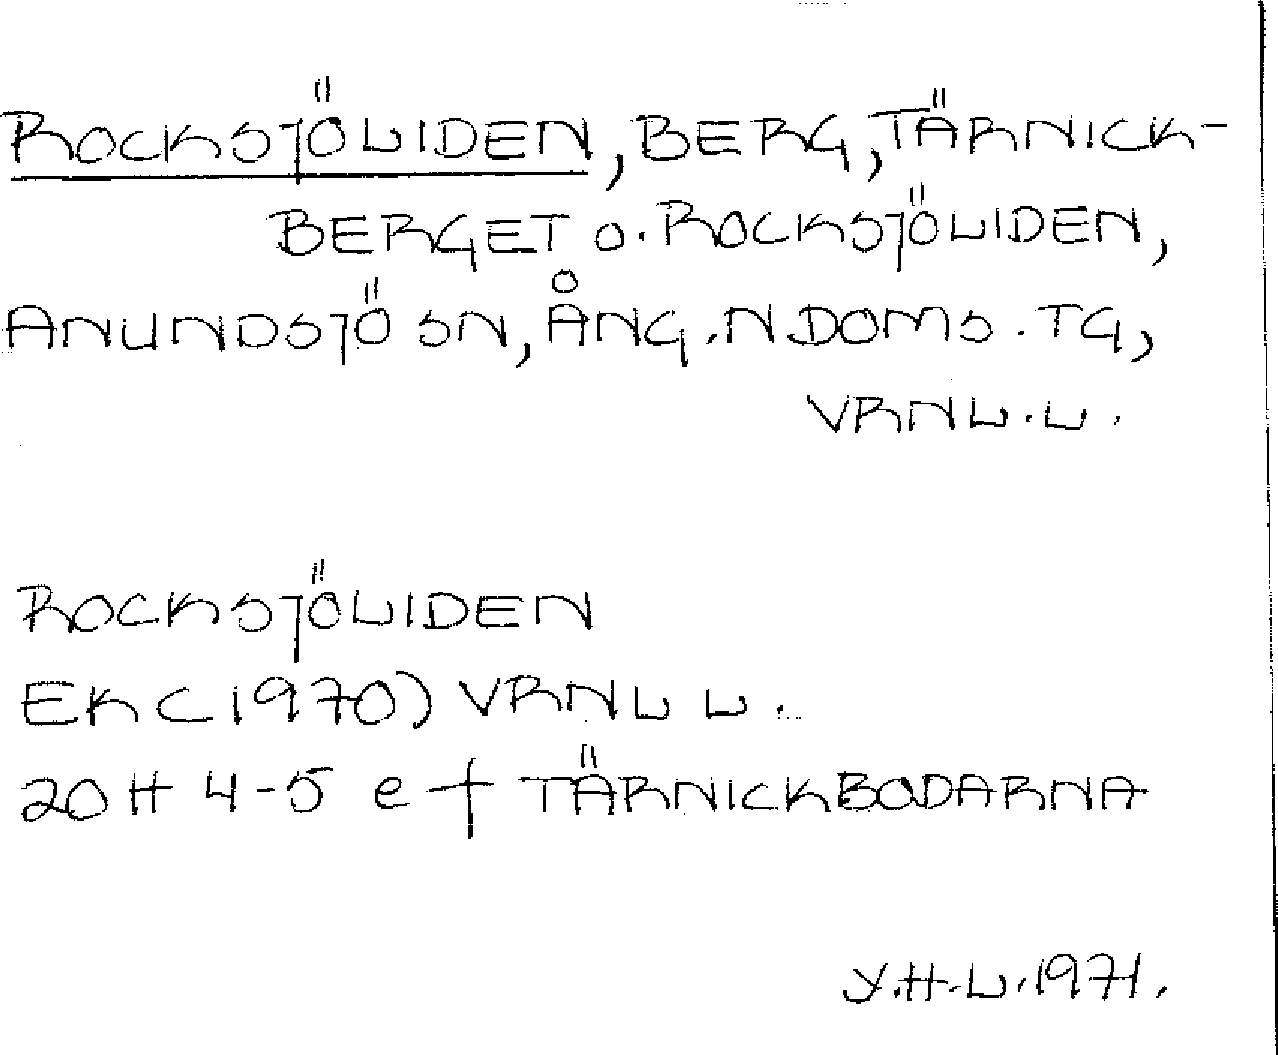 ROCKSJÖLIDEN, BERG, TÄRNICK-
BERGET o. ROCKSJÖLIDEN,
ANUNDSJÖ SN, ÅNG. N DOMS. TG,
VRNL. L.
ROCKSJÖLIDEN
EK (1970) VRNL L.
20H 4-5 e f TÄRNICKBODARNA
Y.H.L. 1971.